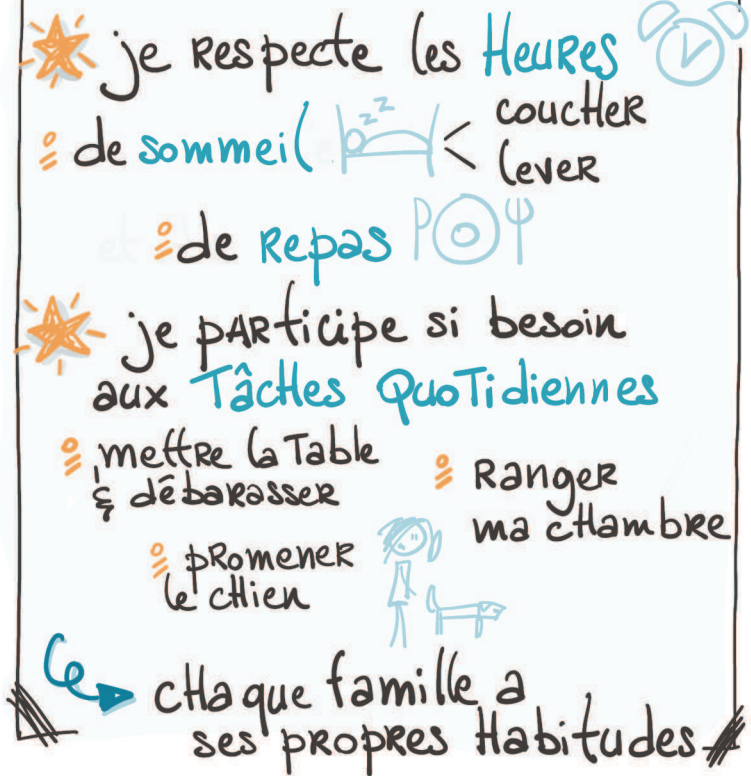 je respecte les Heures
de sommeil < coucher
lever
de Repas
je participe si besoin
aux Tâches Quotidiennes
mettre la Table
& débarasser
Ranger
ma chambre
promener
le chien
chaque famille a
ses propres Habitudes